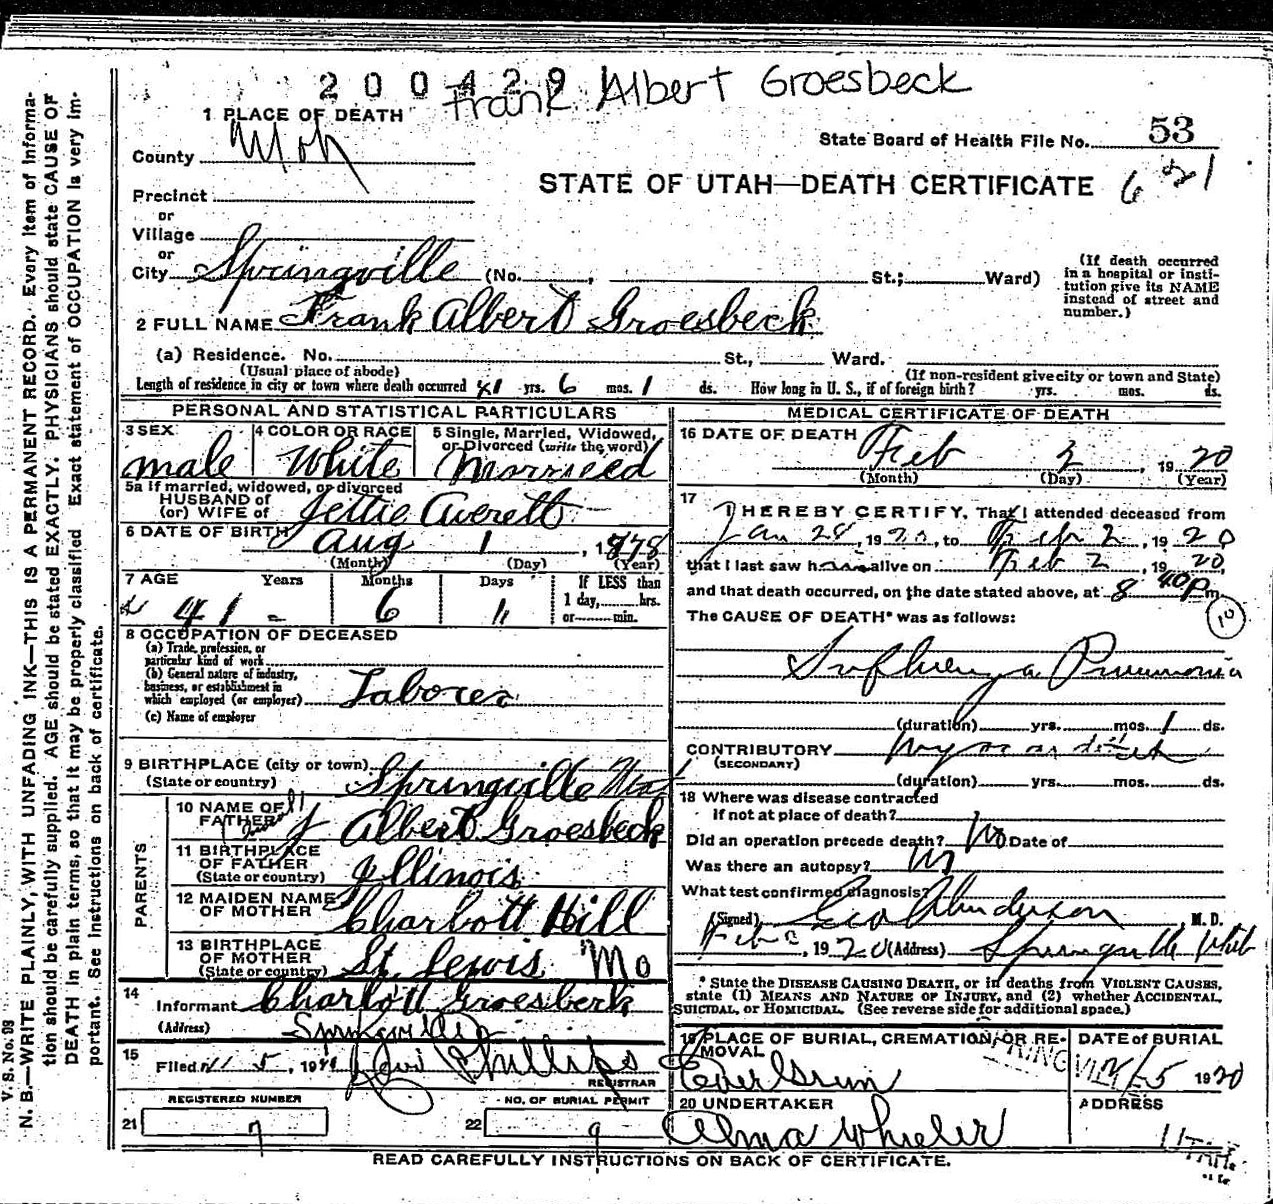 2 0 0 4 2 9 1
Frank Albert Groesbeck
1 PLACE OF DEATH
State Board of Health File No. 53
County
STATE OF UTAH—DEATH CERTIFICATE 621
Precinct
or
Village
or
City Springville (No. , St.; Ward)
(If death occurred in a hospital or institution give its NAME instead of street and number.)
2 FULL NAME Frank Albert Groesbeck
(a) Residence. No. St., Ward.
(Usual place of abode) (If non-resident give city or town and State)
Length of residence in city or town where death occurred 41 yrs. 6 mos. 1 ds. How long in U. S., if of foreign birth? yrs. mos. ds.
PERSONAL AND STATISTICAL PARTICULARS
3 SEX 4 COLOR OR RACE 5 Single, Married, Widowed, or Divorced (write the word)
male White Marrieed
5a If married, widowed, or divorced
HUSBAND of
(or) WIFE of Jettie Averett
6 DATE OF BIRTH Aug 1, 1878
(Month) (Day) (Year)
7 AGE Years Months Days If LESS than
41 - 6 1 1 day, hrs.
or min.
8 OCCUPATION OF DECEASED
(a) Trade, profession, or
particular kind of work
(b) General nature of industry,
business, or establishment in
which employed (or employer) Laborer
(c) Name of employer
9 BIRTHPLACE (city or town)
(State or country) Springville Utah
PARENTS
10 NAME OF
FATHER Albert Groesbeck
11 BIRTHPLACE
OF FATHER
(State or country) Illinois
12 MAIDEN NAME
OF MOTHER Charlott Hill
13 BIRTHPLACE
OF MOTHER
(State or country) St. Lewis Mo
14
Informant Charlott Groesbeck
(Address) Springville
15
Filed 5, 19 Phillips
REGISTRAR
REGISTERED NUMBER NO. OF BURIAL PERMIT
21 7 22 9
MEDICAL CERTIFICATE OF DEATH
16 DATE OF DEATH Feb 2, 1920
(Month) (Day) (Year)
17
I HEREBY CERTIFY, That I attended deceased from
Jan 28, 1920, to Feb 2, 1920
that I last saw him alive on Feb 2, 1920,
and that death occurred, on the date stated above, at 8 40 p m.
The CAUSE OF DEATH* was as follows:
10
Influenza Pneumonia
(duration) yrs. mos. 1 ds.
CONTRIBUTORY
(SECONDARY)
(duration) yrs. mos. ds.
18 Where was disease contracted
if not at place of death?
Did an operation precede death? No Date of
Was there an autopsy? No
What test confirmed diagnosis?
(Signed) Geo Anderson M. D.
Feb, 1920 (Address) Springville Utah
* State the DISEASE CAUSING DEATH, or in deaths from VIOLENT CAUSES, state (1) MEANS AND NATURE OF INJURY, and (2) whether ACCIDENTAL, SUICIDAL, or HOMICIDAL. (See reverse side for additional space.)
19 PLACE OF BURIAL, CREMATION, OR REMOVAL DATE of BURIAL
SPRINGVILLE
5 1920
20 UNDERTAKER ADDRESS
Alma Wheeler UTAH
READ CAREFULLY INSTRUCTIONS ON BACK OF CERTIFICATE.
V. S. No. 98
N. B.—WRITE PLAINLY, WITH UNFADING INK—THIS IS A PERMANENT RECORD. Every item of information should be carefully supplied. AGE should be stated EXACTLY. PHYSICIANS should state CAUSE OF DEATH in plain terms, so that it may be properly classified. Exact statement of OCCUPATION is very important. See instructions on back of certificate.